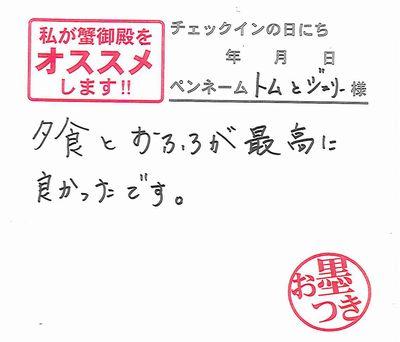 私が蟹御殿を
オススメ
します!!
チェックインの日にち
年 月 日
ペンネーム トムとジェリー 様
夕食とおふろが最高に
良かったです。
お墨
つき